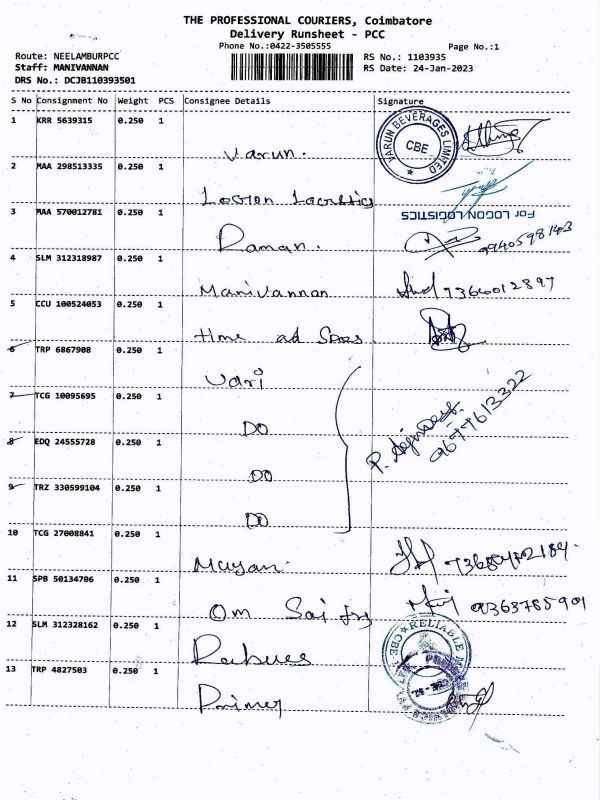 THE PROFESSIONAL COURIERS, Coimbatore
Delivery Runsheet - PCC
Phone No.:0422-3505555 Page No.:1
Route: NEELAMBURPCC RS No.: 1103935
Staff: MANIVANNAN RS Date: 24-Jan-2023
DRS No.: DCJB110393501
S No Consignment No Weight PCS Consignee Details Signature
1 KRR 5639315 0.250 1
Varun. VARUN BEVERAGES LIMITED CBE
2 MAA 298513335 0.250 1
For LOGON LOGISTICS
3 MAA 570012781 0.250 1
Raman. 9940598143
4 SLM 312318987 0.250 1
Manivannan 7366012897
5 CCU 100524053 0.250 1
6 TRP 6867908 0.250 1
Vari
7 TCG 10095695 0.250 1
DO 9677613322
8 EDQ 24555728 0.250 1
DO
9 TRZ 330599104 0.250 1
DO
10 TCG 27008841 0.250 1
Mayan.
11 SPB 50134706 0.250 1
Om Sai 9363785901
12 SLM 312328162 0.250 1
RELIABLE CBE
13 TRP 4827503 0.250 1